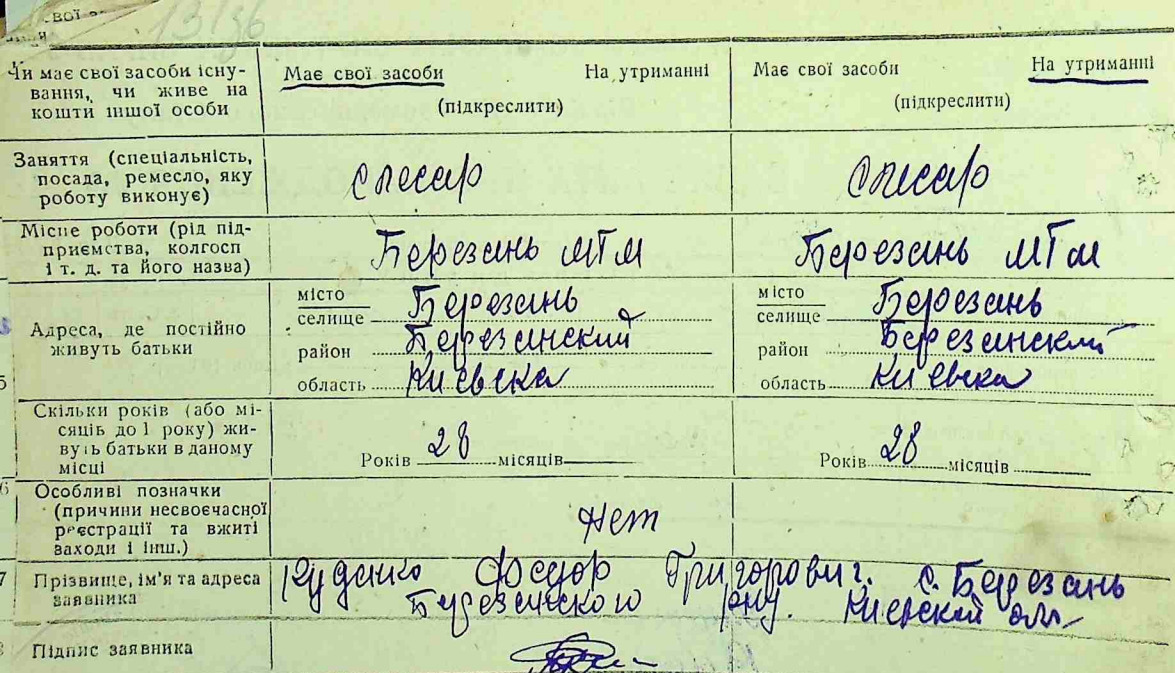 13/36
Чи має свої засоби існу-
вання, чи живе на
кошти іншої особи
Має свої засоби На утриманні
(підкреслити)
Має свої засоби На утриманні
(підкреслити)
Заняття (спеціальність,
посада, ремесло, яку
роботу виконує)
слесар
слесар
Місце роботи (рід під-
приємства, колгосп
і т. д. та його назва)
Березань МТМ
Березань МТМ
Адреса, де постійно
живуть батьки
місто
селище Березань
район Березанский
область Киевска
місто
селище Березань
район Березанский
область Киевска
Скільки років (або мі-
сяців до 1 року) жи-
вуть батьки в даному
місці
Років 28 місяців
Років 28 місяців
6 Особливі позначки
(причини несвоєчасної
реєстрації та вжиті
заходи і інш.)
Нет
7 Прізвище, ім'я та адреса
заявника
Федор Григорович. с. Березань
Березанского р-ну. Киевской обл
Підпис заявника